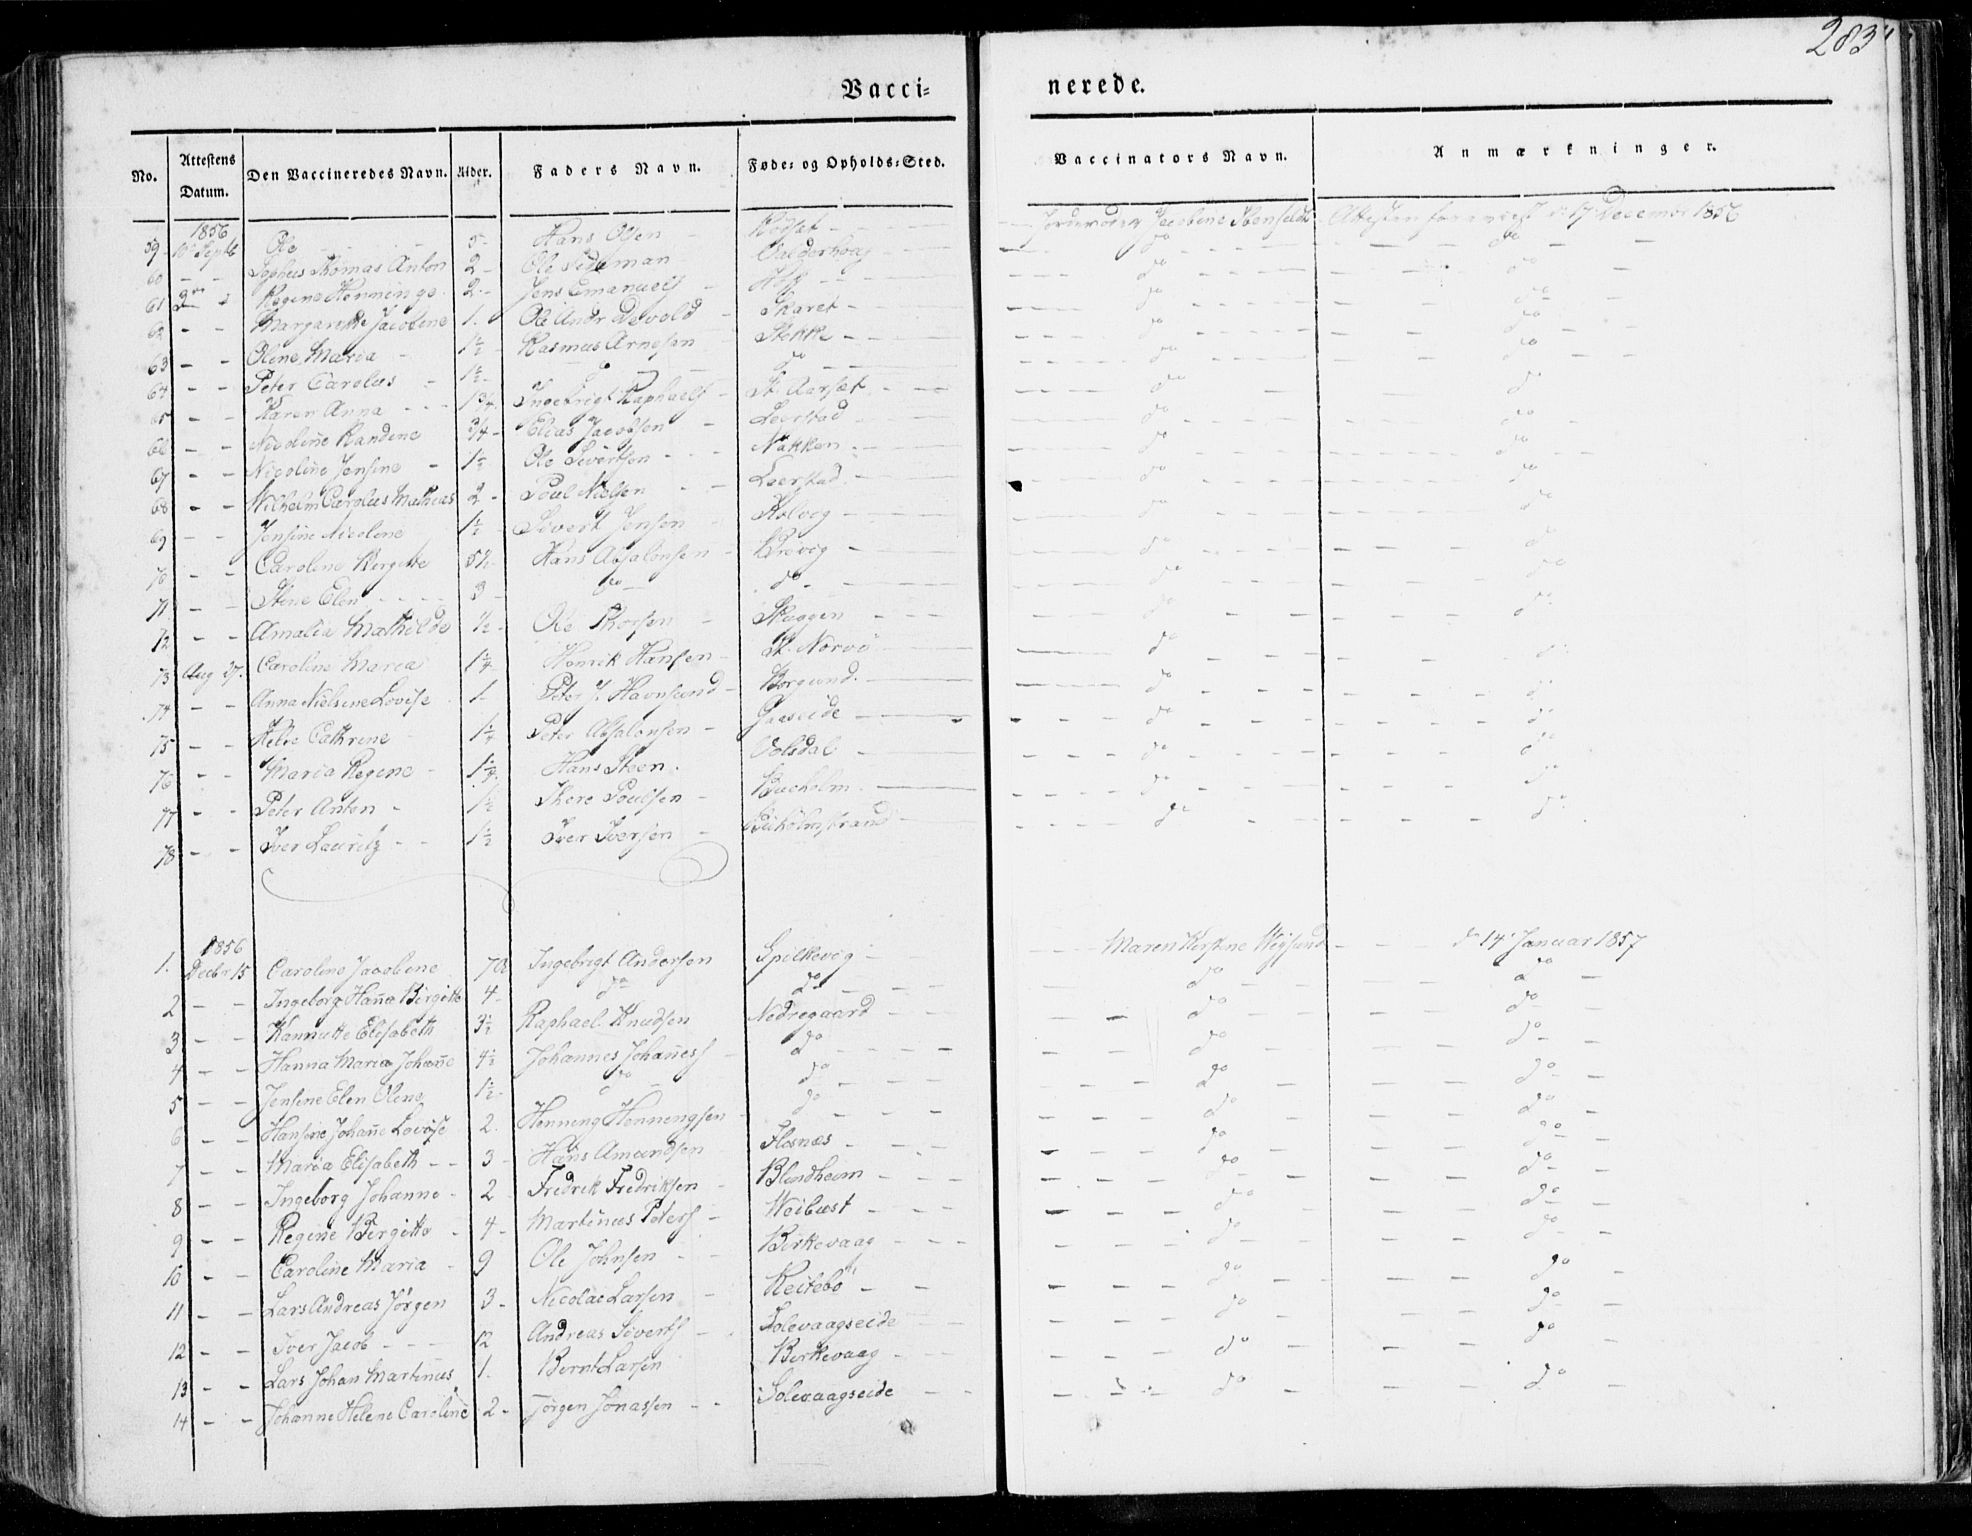 283
Vacci-
nerede.
No. Attestens Datum. Den Vaccineredes Navn. Alder. Faders Navn. Føde- og Opholds-Sted. Vaccinators Navn. Anmærkninger.
1856
59 10 Septb Ole 5 Hans Olsen Rødset Jordemoder Jacobine Stenfeldt Attesten foreviist d: 17 Decembr 1856
60 - - Sophus Thomas Anton 2 Ole Valderhoug do do
61 Regine Henninge 2 Jens Emanuels Hoff do do
62 - - Margarethe Jacobine 1. Ole Andr Devold Skaret do do
63 - - Oline Maria 1 1/2 Rasmus Arnesen Stokke do do
64 - - Peter Carolus 1 1/2 do do do do
65 - - Karen Anna 1 3/4 Ingebrigt Raphaels St. Aarsæt do do
66 - - Nicoline Randine 3/4 Elias Jacobsen Leerstad do do
67 - - Nicoline Jensine 1 1/2 Ole Sivertsen Nakken do do
68 - - Vilhelm Carolus Mathias 2 Poul Nielsen Leerstad do do
69 - - Jensine Nicoline 1 1/2 Sivert Jensen Kolvig do do
70 - - Caroline Birgitte 5 1/2 Hans Absalonsen Brevig do do
71 - - Stine Elen 3 do do do do
72 - - Amalia Mathilde 1/2 Ole Thorsen Skuggen do do
73 Aug 27. Caroline Maria 1 1/4 Henrik Hansen St. Norvø do do
74 - - Anna Nielsine Lovise 1 Peter J. Havnsund Borgund do do
75 - - Cathrine 1 1/4 Peter Absalonsen Gaaseide do do
76 - - Maria Regine 1 1/4 Hans Steen Volsdal do do
77 - - Peter Anton 1 1/2 Thore Poulsen Bueholm do do
78 - - Iver Lauritz 1 1/2 Iver Iversen Buholmstrand do do
1856
1. Decbr 15 Caroline Jacobine 7 Ingebrigt Andersen Spilkevig Maren Kirstine Vegsund d 14 Januar 1857
2 - - Ingeborg Hanna Birgitte 4 do do do do
3 - - Hannutte Elisabeth 3 1/2 Raphael Knudsen Nedregaard do do
4 - - Hanna Maria Johanne 4 1/2 Johannes Johannes do do do
5 - - Jensine Elen Oline 1 1/2 do do do do
6 - - Hansine Johanne Lovise 2. Henning Henningsen do do do
7 - - Maria Elisabeth 3 Hans Amundsen Flisnæs do do
8 - - Ingeborg Johanne 2 Fredrik Fredriksen Blindheim do do
9 - - Regine Birgitte 4 Martinus Peters Veibust do do
10 - - Caroline Maria 9 Ole Johnsen Birkevaag do do
11 - - Lars Andreas Jørgen 3 Nicolai Larsen Reitebø do do
12 - - Iver Jacob 12 Andreas Siverts Solevaagseide do do
13 - - Lars Johan Martinus 1. Bernt Larsen Birkevaag do do
14 - - Johanne Helene Caroline 2 Jørgen Jonassen Solevaagseide do do